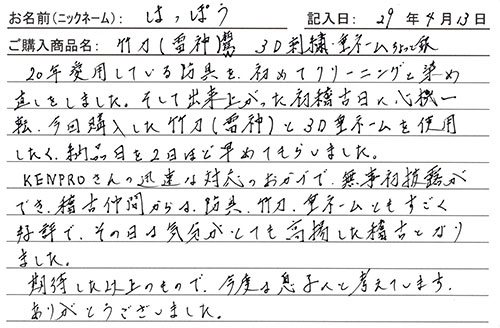 お名前(ニックネーム): はっぽう 記入日: 29 年 4 月 13 日
ご購入商品名: 竹刀(雷神 3D刺繍・垂ネーム
20年愛用している防具を、初めてクリーニングと染め
直しをしました。そして出来上がった初稽古日に心機一
転、今回購入した竹刀(雷神)と3D垂ネームを使用
したく、納品日を2日ほど早めてもらいました。
KENPROさんの迅速な対応のおかげで、無事初披露が
でき、稽古仲間からは、防具、竹刀、垂ネームともすごく
好評で、その日は気分がとても高揚した稽古となり
ました。
期待した以上のもので、今度は息子へと考えています。
ありがとうございました。